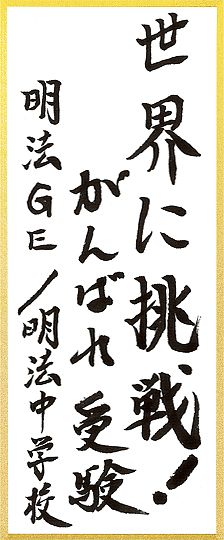 世界に挑戦!
がんばれ受験
明法GE/明法中学校